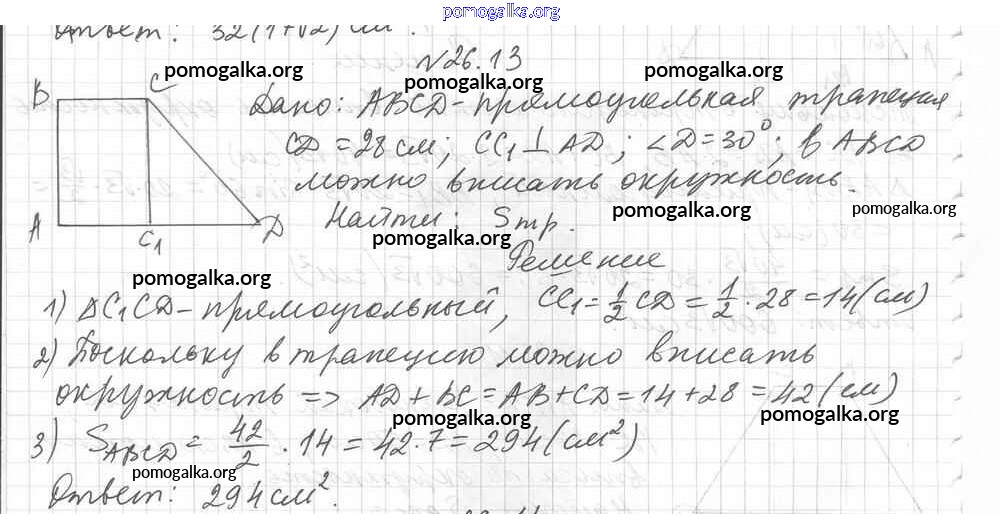 pomogalka.org
Ответ: 32(1+√2) см².
№26.13
pomogalka.org pomogalka.org pomogalka.org
B C
Дано: ABCD - прямоугольная трапеция
CD = 28 см; CC₁ ⊥ AD; ∠D = 30°; в ABCD
можно вписать окружность.
pomogalka.org pomogalka.org
A C₁ D
Найти: Sтр.
pomogalka.org
Решение
pomogalka.org
1) ΔC₁CD - прямоугольный, CC₁ = 1/2 CD = 1/2 · 28 = 14 (см)
pomogalka.org pomogalka.org
2) Поскольку в трапецию можно вписать
окружность => AD + BC = AB + CD = 14 + 28 = 42 (см)
pomogalka.org pomogalka.org
3) S_ABCD = 42/2 · 14 = 42 · 7 = 294 (см²)
pomogalka.org
Ответ: 294 см².